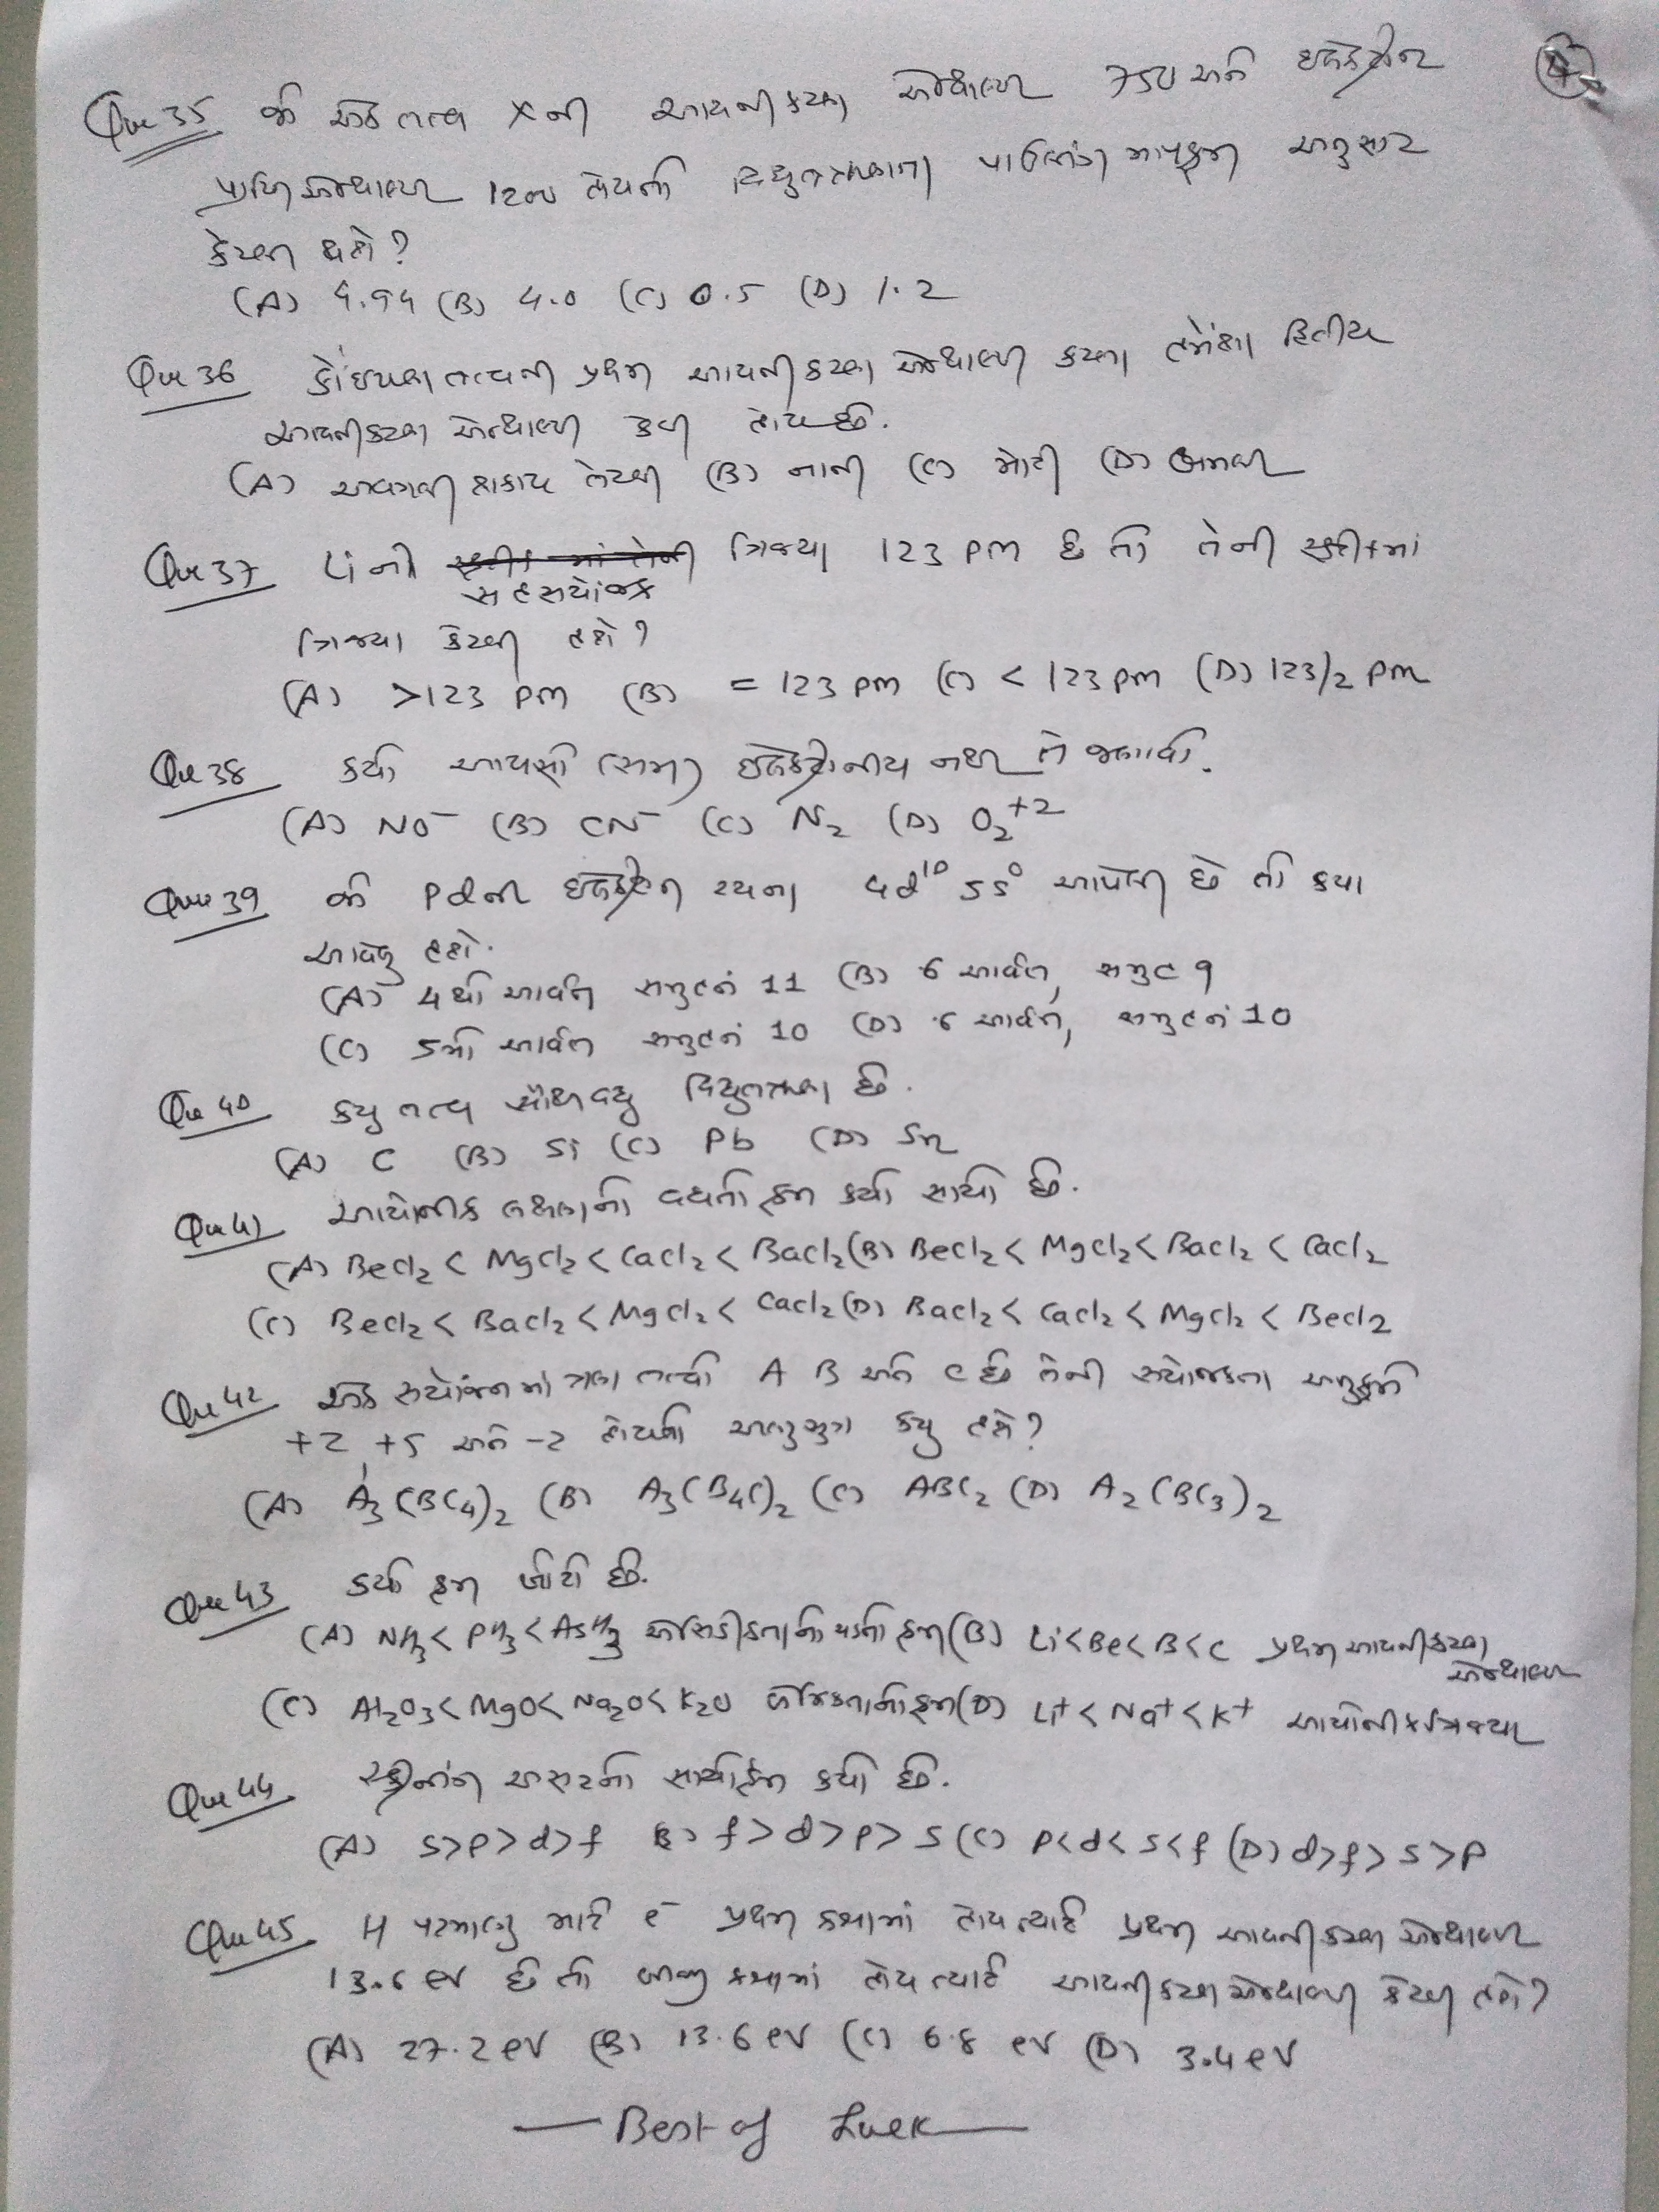 4
Que 35 જો એક તત્વ X ની આયનીકરણ એન્થાલ્પી 750 અને ઇલેક્ટ્રોન
પ્રાપ્તિ એન્થાલ્પી 1200 હોયતો વિદ્યુતઋણતા પાઉલિંગ માપક્રમ અનુસાર
કેટલી થશે?
(A) 4.94 (B) 4.0 (C) 0.5 (D) 1.2
Que 36 કોઇપણ તત્વની પ્રથમ આયનીકરણ એન્થાલ્પી કરતા હંમેશા દ્વિતીય
આયનીકરણ એન્થાલ્પી કેવી હોય છે.
(A) અવગણી શકાય તેટલી (B) નાની (C) મોટી (D) બમણી
Que 37 Li ની ત્રિજ્યા 123 pm છે તો તેની સ્ફટીકમાં
સહસયોજક
ત્રિજ્યા કેટલી હશે?
(A) >123 pm (B) = 123 pm (C) < 123 pm (D) 123/2 pm
Que 38 કયો આયસો (સમ) ઇલેક્ટ્રોનીય નથી તે જણાવો.
(A) NO⁻ (B) CN⁻ (C) N₂ (D) O₂⁺²
Que 39 જો Pd ની ઇલેક્ટ્રોન રચના 4d¹⁰ 5s⁰ આપેલી છે તો કયા
આવેલુ હશે.
(A) 4થો આર્વત સમુહનં 11 (B) 6 આર્વત, સમુહ 9
(C) 5મો આર્વત સમુહનં 10 (D) 6 આર્વત, સમુહનં 10
Que 40 કયુ તત્વ સૌથી વધુ વિદ્યુતઋણ છે.
(A) C (B) Si (C) Pb (D) Sn
Que 41 આયોનીક લક્ષણનો વધતો ક્રમ કયો સાચો છે.
(A) BeCl₂ < MgCl₂ < CaCl₂ < BaCl₂ (B) BeCl₂ < MgCl₂ < BaCl₂ < CaCl₂
(C) BeCl₂ < BaCl₂ < MgCl₂ < CaCl₂ (D) BaCl₂ < CaCl₂ < MgCl₂ < BeCl₂
Que 42 એક સયોજનમાં ત્રણ તત્વો A B અને C છે તેની સયોજકતા અનુક્રમે
+2 +5 અને -2 હોયતો અણુસુત્ર કયુ હશે?
(A) A₃(BC₄)₂ (B) A₃(B₄C)₂ (C) ABC₂ (D) A₂(BC₃)₂
Que 43 કયો ક્રમ ખોટો છે.
(A) NH₃ < PH₃ < AsH₃ એસિડીકતાનો ચડતો ક્રમ (B) Li < Be < B < C પ્રથમ આયનીકરણ
એન્થાલ્પી
(C) Al₂O₃ < MgO < Na₂O < K₂O બેઝિકતાનો ક્રમ (D) Li⁺ < Na⁺ < K⁺ આયોનીક ત્રિજ્યા
Que 44 સ્ક્રીનીંગ અસરનો સાચો ક્રમ કયો છે.
(A) s>p>d>f (B) f>d>p>s (C) p<d<s<f (D) d>f>s>p
Que 45 H પરમાણુ માટે e⁻ પ્રથમ કક્ષામાં હોય ત્યારે પ્રથમ આયનીકરણ એન્થાલ્પી
13.6 eV છે તો બીજી કક્ષામાં હોય ત્યારે આયનીકરણ એન્થાલ્પી કેટલી હશે?
(A) 27.2 eV (B) 13.6 eV (C) 6.8 eV (D) 3.4 eV
— Best of Luck —